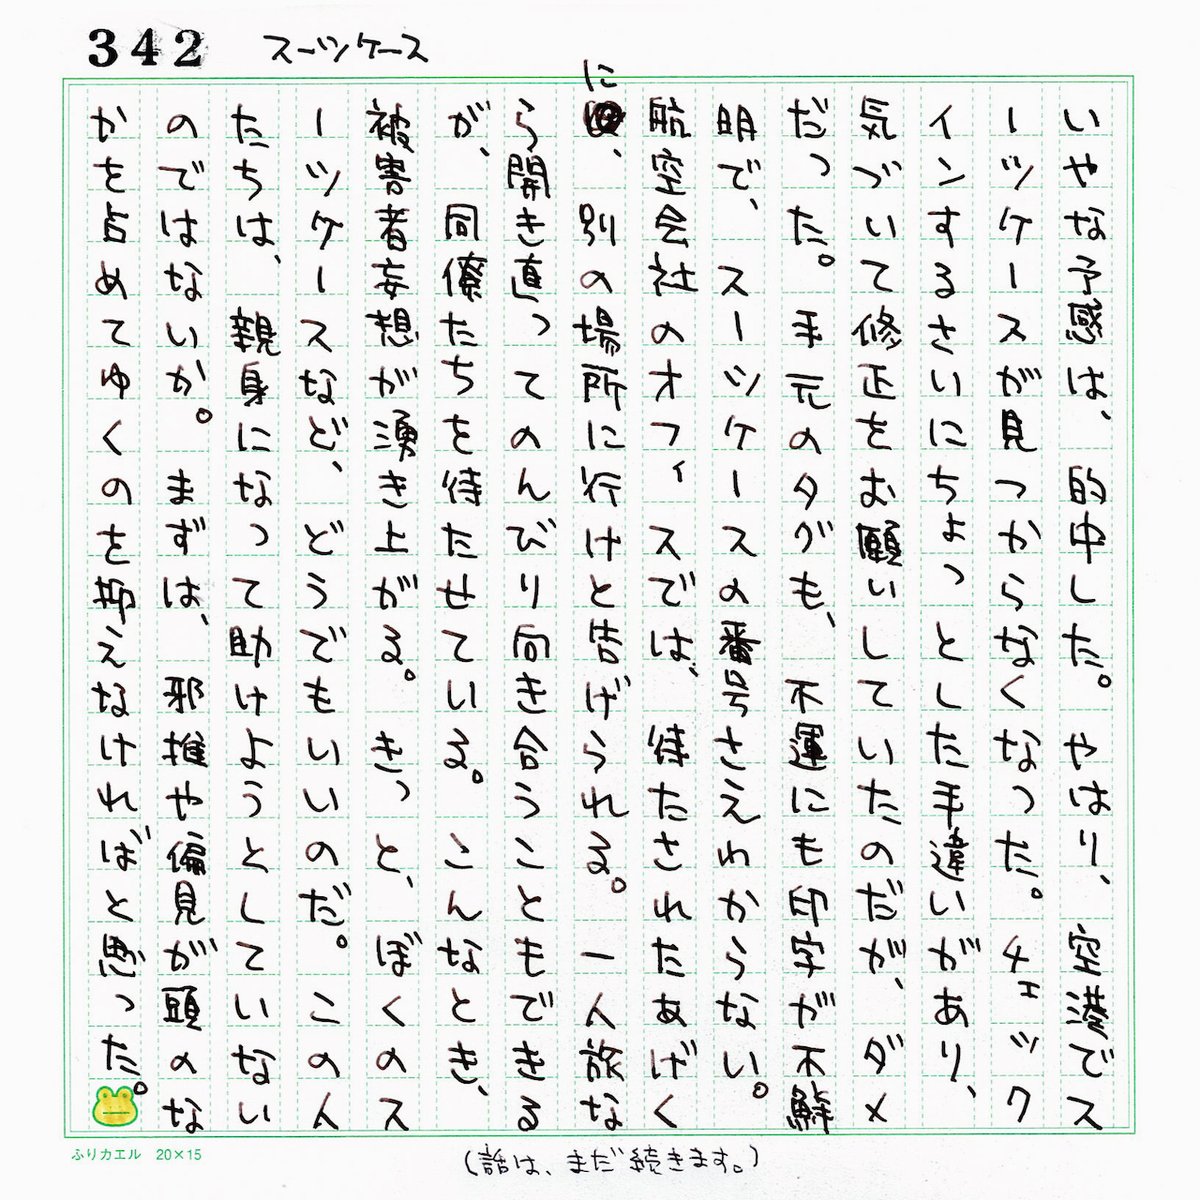 342 スーツケース
いやな予感は、的中した。やはり、空港でス
ーツケースが見つからなくなった。チェック
インするさいにちょっとした手違いがあり、
気づいて修正をお願いしていたのだが、ダメ
だった。手元のタグも、不運にも印字が不鮮
明で、スーツケースの番号さえわからない。
航空会社のオフィスでは、待たされたあげく
に、別の場所に行けと告げられる。一人旅な
ら開き直ってのんびり向き合うこともできる
が、同僚たちを待たせている。こんなとき、
被害者妄想が湧き上がる。きっと、ぼくのス
ーツケースなど、どうでもいいのだ。この人
たちは、親身になって助けようとしていない
のではないか。まずは、邪推や偏見が頭のな
かを占めてゆくのを抑えなければと思った。
ふりカエル 20×15
(話は、まだ続きます。)